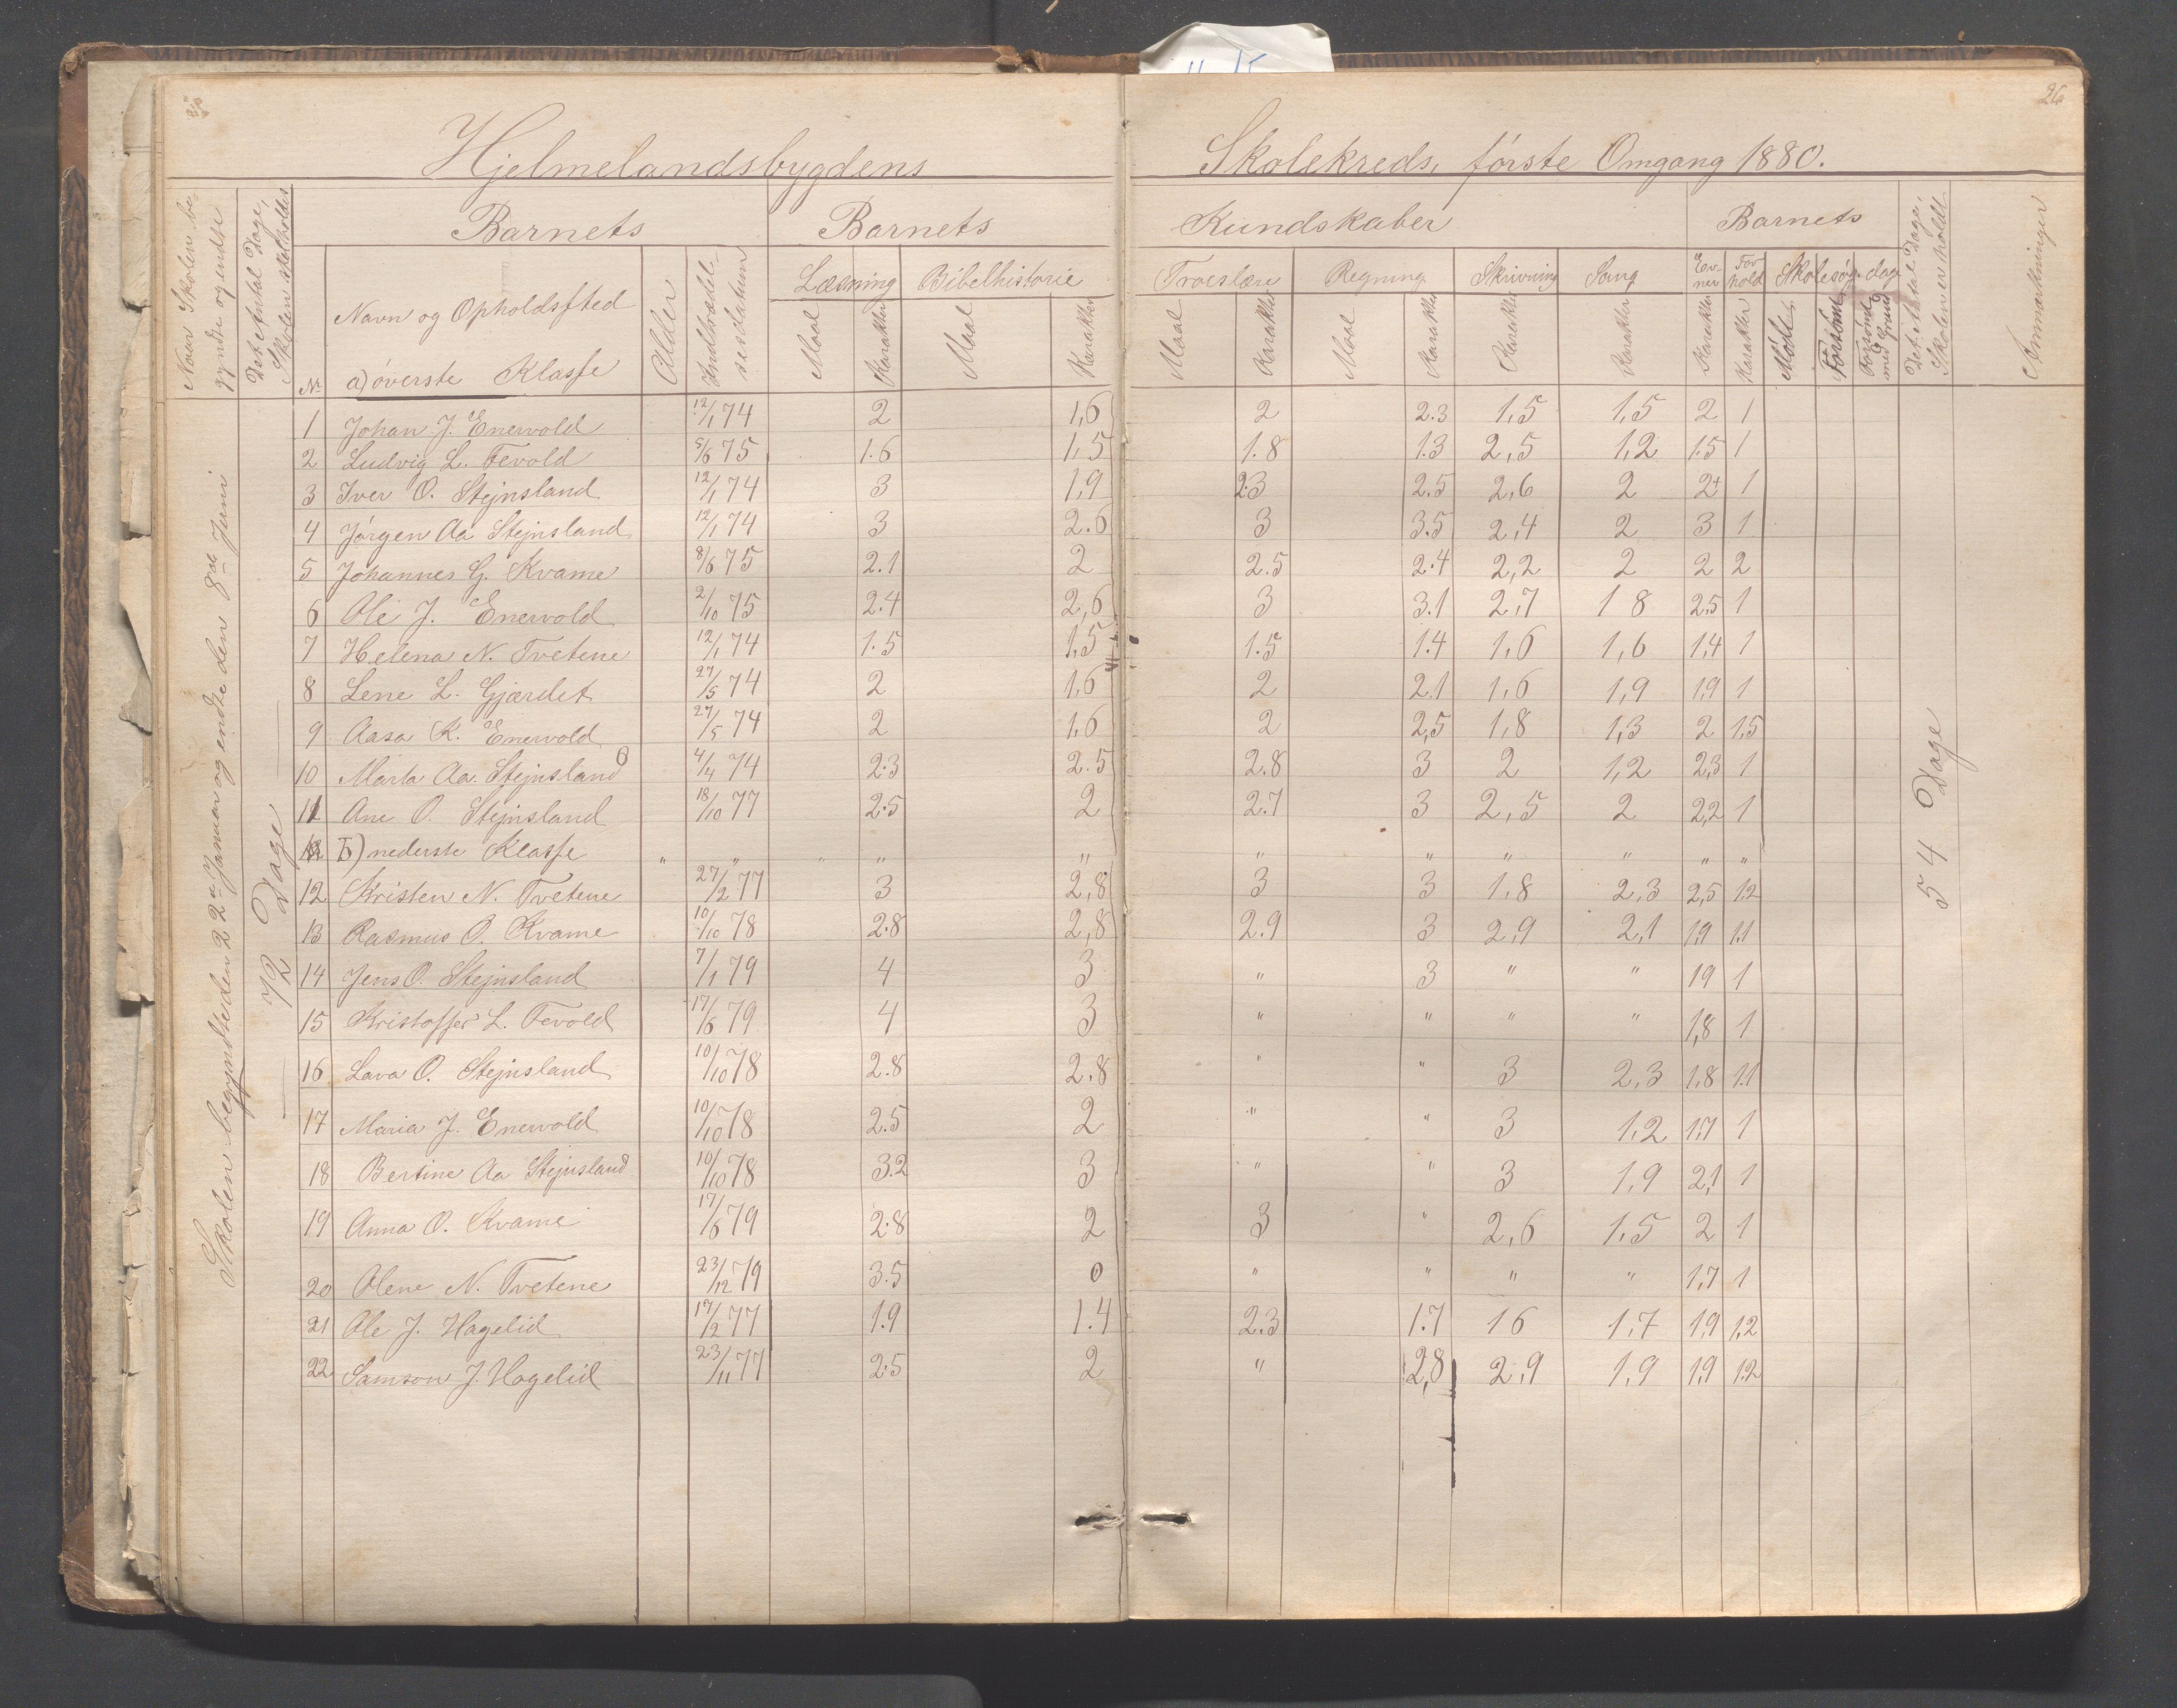 26
Hjelmelandsbygdens Skolekreds, første Omgang 1880.
Naar Skolen begyndte og endte
Det Antal Dage, Skolen skal holdes
Barnets
Barnets
Kundskaber
Barnets
Det Antal Dage, Skolen er holdt
Anmærkninger
Nr
Navn og Opholdssted
a) øverste Klasse
Alder
Indtrædelsesdatum
Læsning
Bibelhistorie
Troeslære
Regning
Skrivning
Sang
Evner
Forhold
Skolesøg. dage
Maal Karakter Maal Karakter Maal Karakter Maal Karakter Karakter Karakter Karakter Karakter Mødt Forsømt Forsømt med Grund
Skolen begyndte den 22de Januar og endte den 8de Juni
72 Dage
54 Dage
1 Johan J. Enervold 12/1 74 2 1,6 2 2.3 1,5 1,5 2 1
2 Ludvig L. Tevold 5/6 75 1.6 1,5 1.8 1.3 2,5 1,2 1.5 1
3 Iver O. Stejnsland 12/1 74 3 1,9 2.3 2.5 2,6 2 2+ 1
4 Jørgen Aa Stejnsland 12/1 74 3 2.6 3 3.5 2,4 2 3 1
5 Johannes G. Kvame 8/6 75 2.1 2 2.5 2.4 2,2 2 2 2
6 Ole J. Enervold 2/10 75 2.4 2,6 3 3.1 2,7 1 8 2,5 1
7 Helena N. Tvetene 12/1 74 1.5 1,5 1.5 1.4 1,6 1,6 1,4 1
8 Lene L. Gjærdet 27/5 74 2 1,6 2 2.1 1,6 1,9 1,9 1
9 Aasa K. Enervold 27/5 74 2 1,6 2 2,5 1,8 1,3 2 1,5
10 Marta Aa. Stejnsland 4/4 74 2.3 2.5 2.8 3 2 1,2 2,3 1
11 Ane O. Stejnsland 18/10 77 2.5 2 2.7 3 2,5 2 2,2 1
b) nederste Klasse " " " " " " " " " " "
12 Kristen N. Tvetene 27/2 77 3 2,8 3 3 1,8 2,3 2,5 1.2
13 Rasmus O. Kvame 10/10 78 2.8 2,8 2.9 3 2,9 2,1 1,9 1.1
14 Jens O. Stejnsland 7/1 79 4 3 " 3 " " 1 9 1
15 Kristoffer L. Tevold 17/6 79 4 3 " " " " 1,8 1
16 Lava O. Stejnsland 10/10 78 2.8 2.8 " " 3 2,3 1,8 1.1
17 Maria J. Enervold 10/10 78 2.5 2 " " 3 1,2 1,7 1
18 Bertine Aa Stejnsland 10/10 78 3.2 3 " " 3 1,9 2,1 1
19 Anna O. Kvame 17/6 79 2.8 2 3 " 2,6 1,5 2 1
20 Olene N. Tvetene 23/12 79 3.5 0 " " " " 1,7 1
21 Ole J. Hagelid 17/2 77 1.9 1.4 2.3 1.7 1 6 1,7 1,9 1,2
22 Samson J. Hagelid 23/11 77 2.5 2 " 2,8 2,9 1,9 1,9 1.2